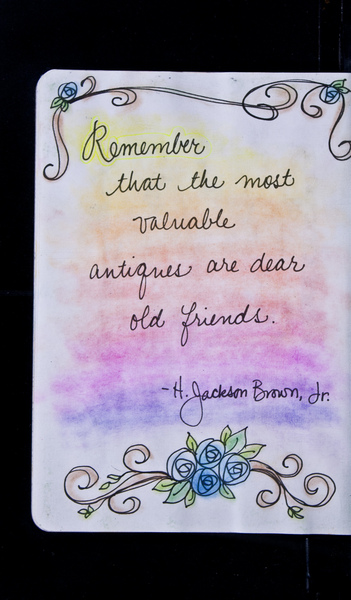 Remember
that the most
valuable
antiques are dear
old friends.
-H. Jackson Brown, Jr.